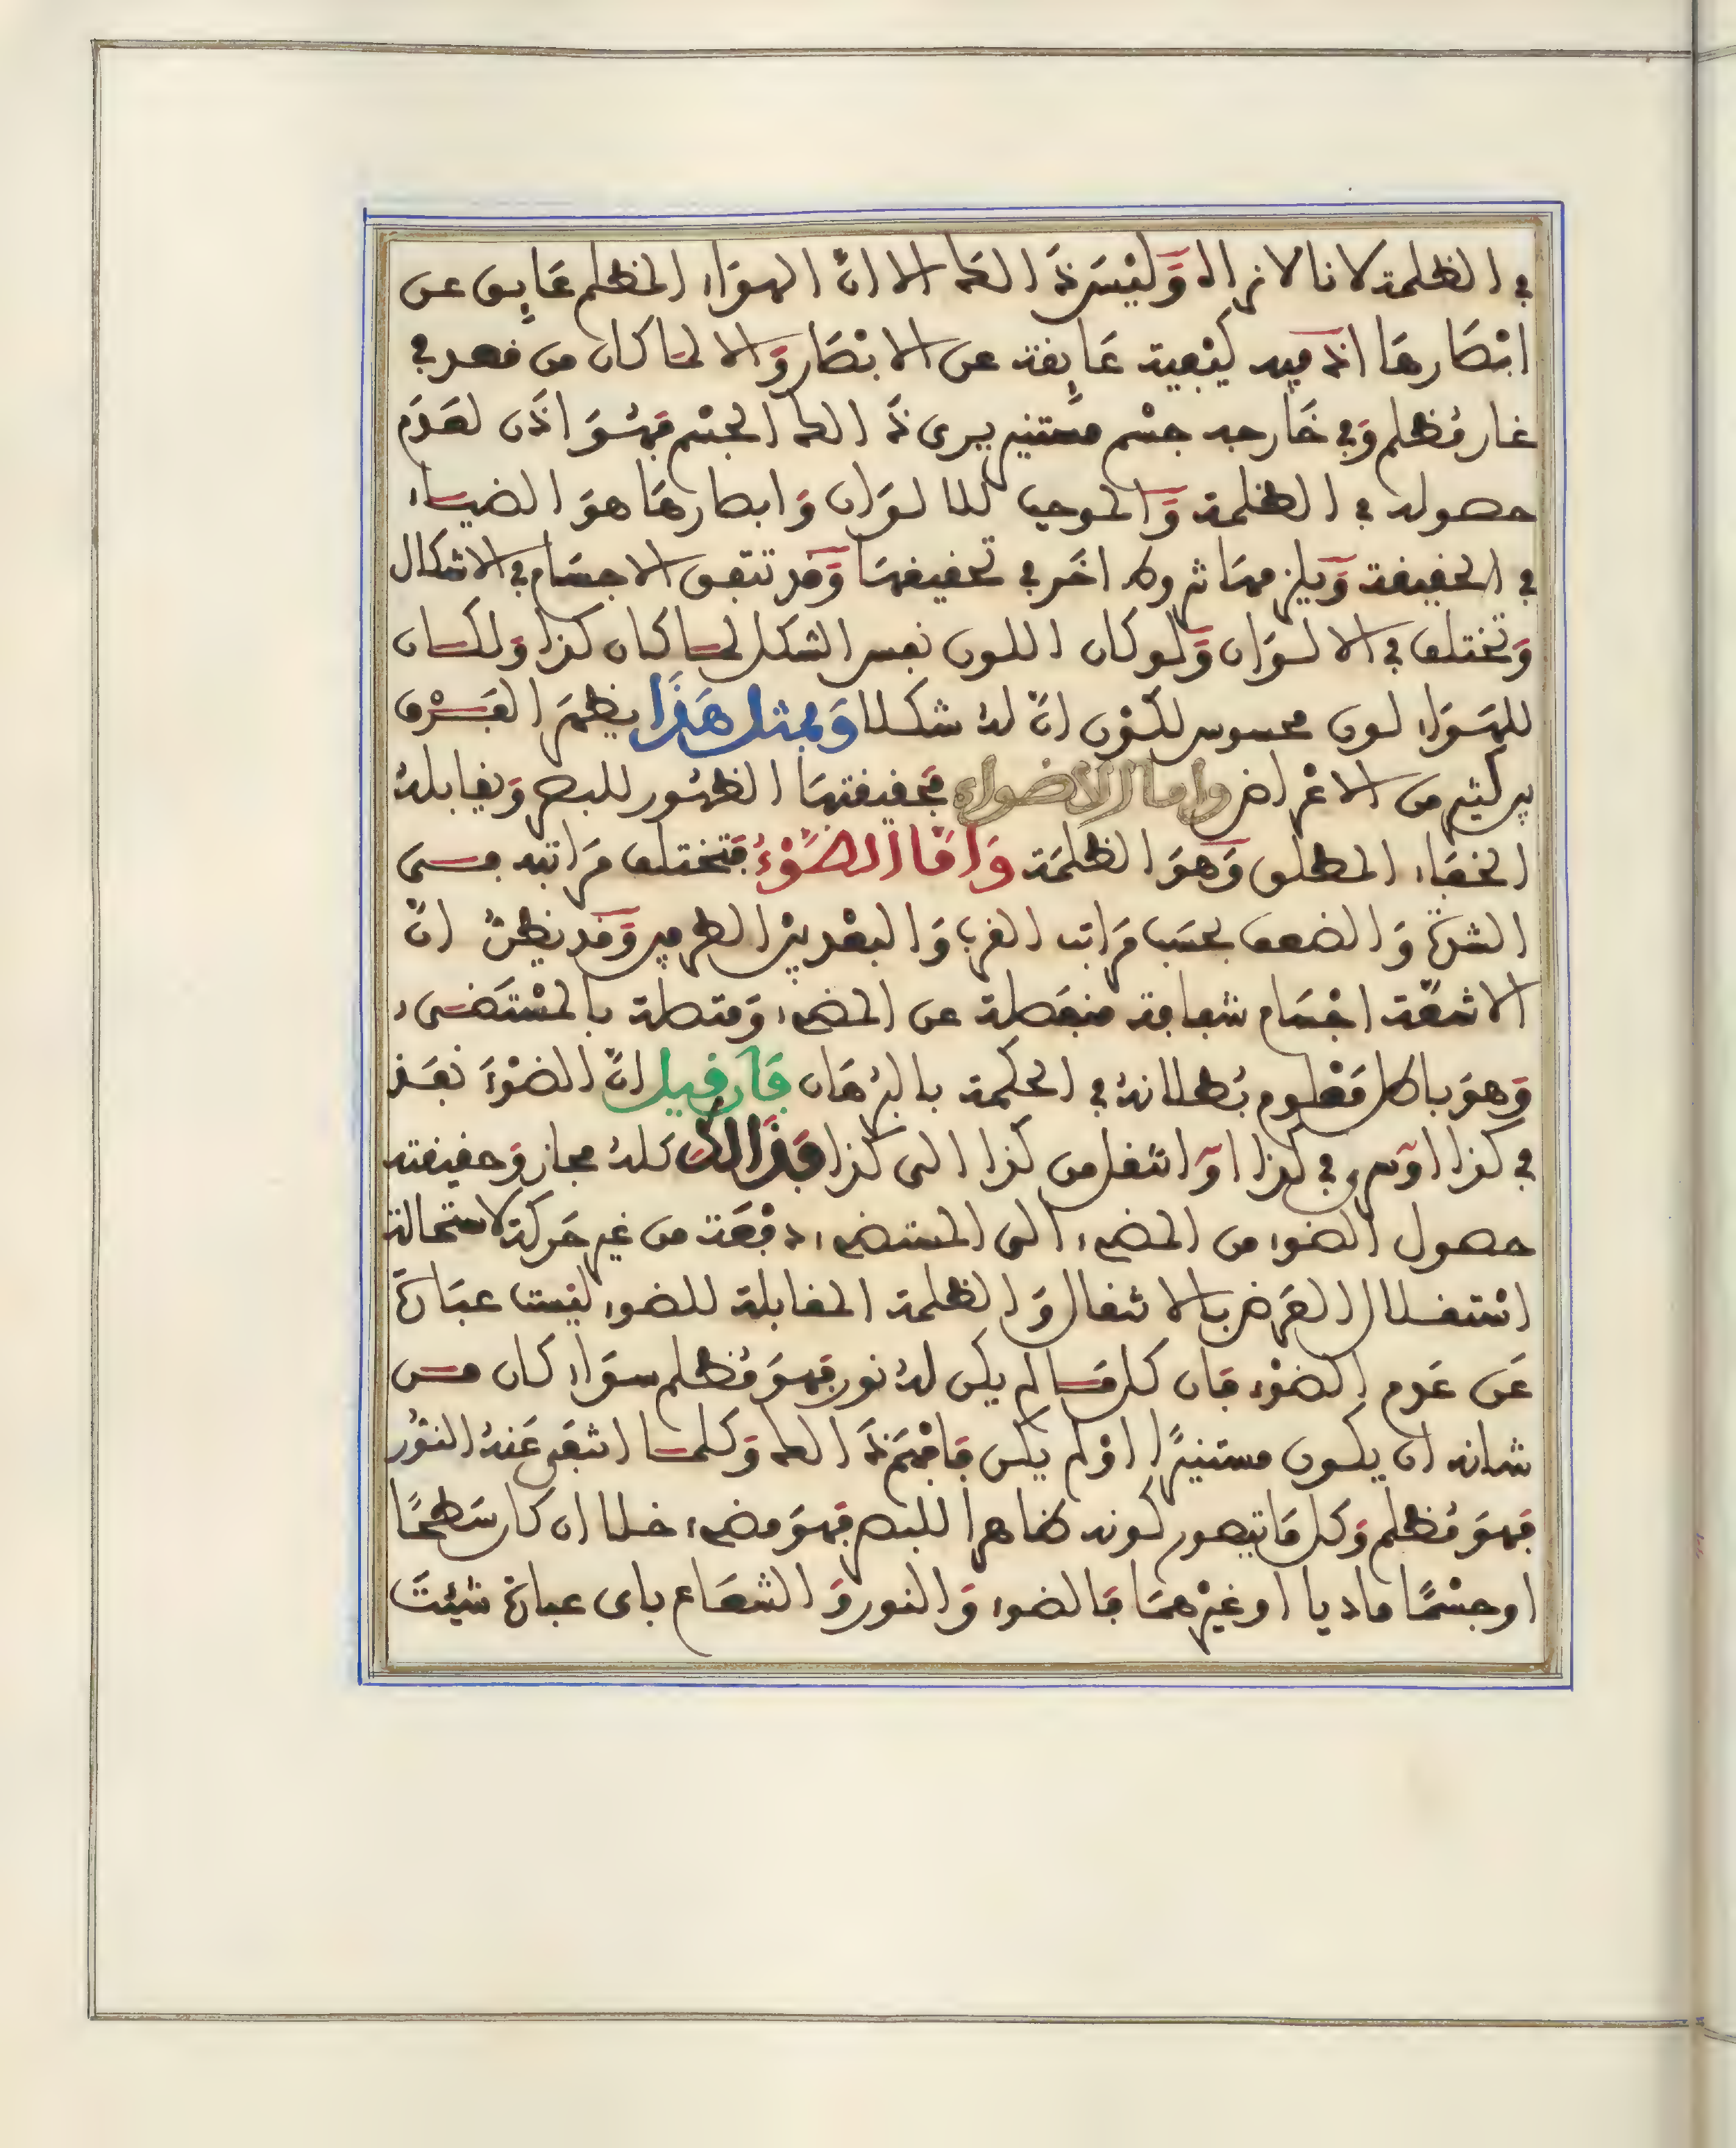 في الظلمة لانا لا نراه وَلَيْسَ ذَالك الا انّ الهوَاء المظلم عَايِق عن
ابْصَارهَا اذ فيه كيْفية عَايِقة عن الابْصَار وَالا لما كان من قعد في
غار مُظلم وَفي خَارجه جسْم مستنير يرى ذَالك الجسْم فهُوَ اذَن لعَدَم
حصوله في الظلمة وَالموجب للالوَان وَابصارهَا هوَ الضياء
في الحقيقة وَيلزمهَا شروط اخَر في تحقيقهَا وَقد تتفق الاجسَام في الاشكال
وَتختلف في الالوَان وَلو كان اللون نفس الشكل لما كان كذا وَلكان
للهوَاء لون محسوس لكوْن انّ لهُ شكلا وَبمثل هَذَا يظهَر الفَرْق
بين كثير من الاعْراض واما الاضواء فحقيقتهَا الظهُور للبصر وَيقابلهُ
الخفَاء المطلق وَهوَ الظلمَة وَامّا الضوْءُ فتختلف مَراتبه في
الشدّة وَالضعف بحسَب مَراتب القرب وَالبعْد بيْن الطرفين وَقد يظنّ انّ
الاشعّة اجْسَام شفافة منفَصلة عن المضيء وَمتصلة بالمسْتَضيء
وَهوَ باطل مَعْلوم بُطلانهُ في الحكمة بالبُرهَان فَان قيل انّ الضوْءَ نفَذ
في كذا اوْ سرى في كذا اوْ انتقل من كذا الى كذا فَذَالك كلهُ مجاز وَحقيقته
حصول الضوء من المضيء الى المستضيء دفْعَة من غير حَركة لاستحالة
اسْتقلال العَرض بالانتقال وَالظلمة المقابلة للضوء ليْست عبَارة
عَن عَدم الضوْء فان كل مَا لم يكن لهُ نور فهوَ مُظلم سوَاء كان من
شانه ان يكون مستنيرًا اوْ لم يكن فافْهَم ذَالك وَكلما انتفَى عَنهُ النوُر
فهوَ مُظلم وَكل مَا يتصور كونه ظاهرا للبصر فهوَ مضيء خلا ان كان سَطحًا
او جسْمًا ماديا او غيْرهمَا فالضوء وَالنور وَالشعَاع باى عبارة شيْئتَ